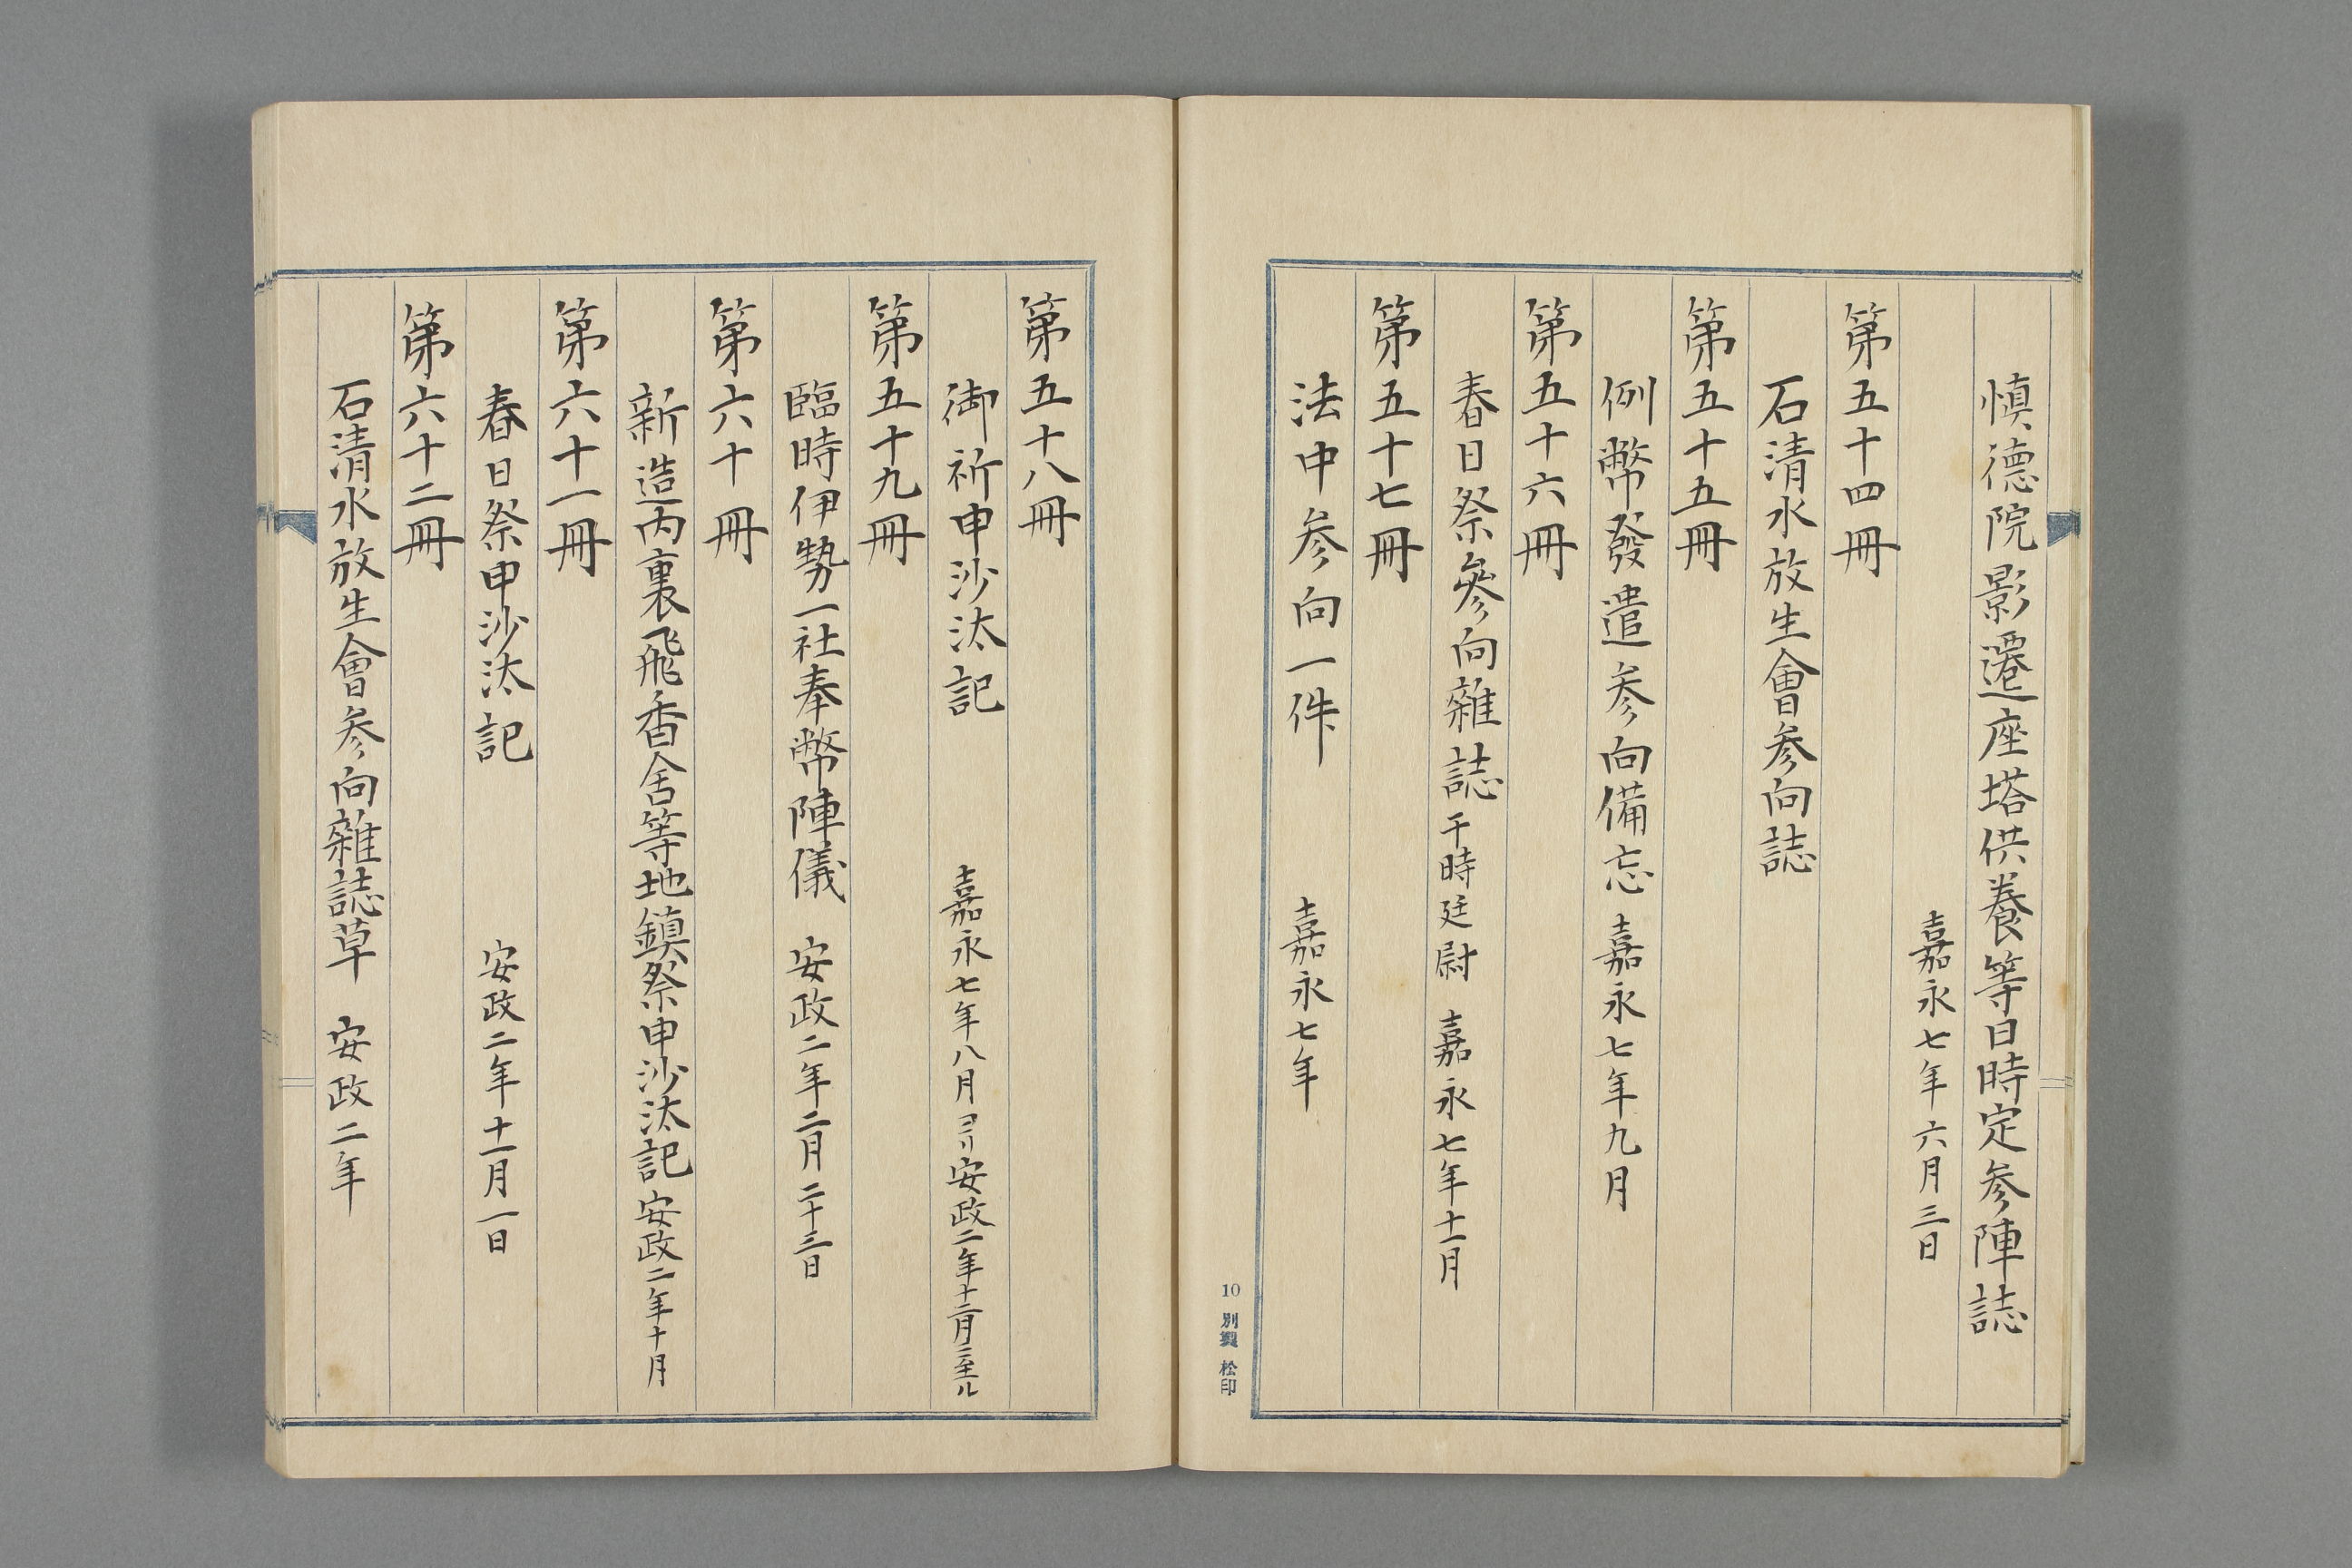 慎德院影遷座塔供養等日時定参陣誌
嘉永七年六月三日
第五十四冊
石清水放生會参向誌
第五十五冊
例幣發遣参向備忘 嘉永七年九月
第五十六冊
春日祭參向雜誌 于時廷尉 嘉永七年十一月
第五十七冊
法中参向一件 嘉永七年
10 別製 松印
第五十八冊
御祈申沙汰記 嘉永七年八月ヨリ安政二年十二月ニ至ル
第五十九冊
臨時伊勢一社奉幣陣儀 安政二年二月二十三日
第六十冊
新造内裏飛香舍等地鎮祭申沙汰記 安政二年十月
第六十一冊
春日祭申沙汰記 安政二年十一月一日
第六十二冊
石清水放生會参向雜誌草 安政二年